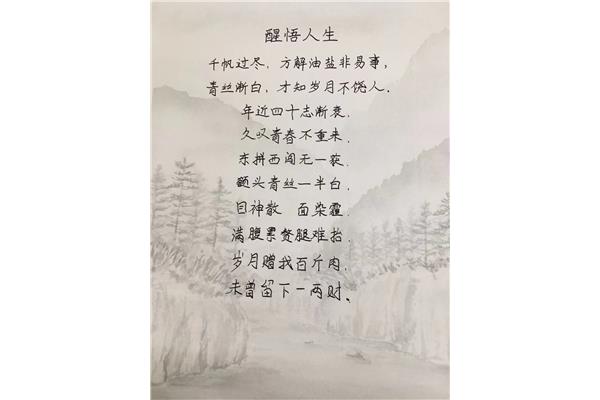 醒悟人生
千帆过尽，方解油盐非易事，
青丝渐白，才知岁月不饶人．
年近四十志渐衰．
久叹青春不重来．
东拼西闯无一获．
额头青丝一半白．
目神散　面染霾．
满腹累赘腿难抬．
岁月赠我百斤肉．
未曾留下一两财、